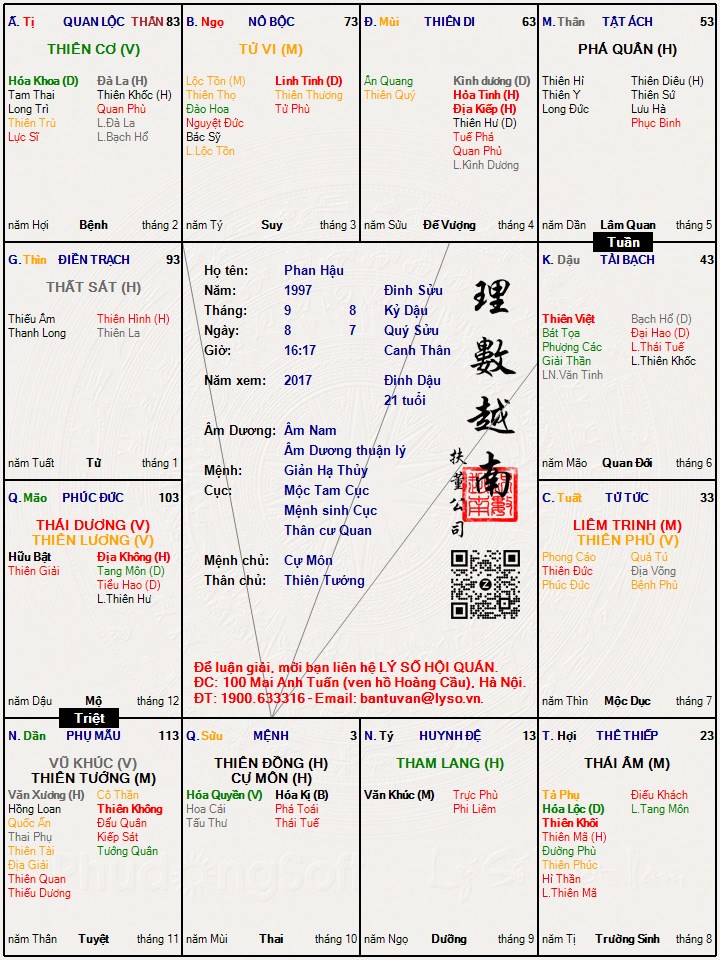 Ấ. Tị QUAN LỘC THÂN 83
THIÊN CƠ (V)
Hóa Khoa (D) Đà La (H)
Tam Thai Thiên Khốc (H)
Long Trì Quan Phù
Thiên Trù L.Đà La
Lực Sĩ L.Bạch Hổ
năm Hợi Bệnh tháng 2
B. Ngọ NÔ BỘC 73
TỬ VI (M)
Lộc Tồn (M) Linh Tinh (D)
Thiên Thọ Thiên Thương
Đào Hoa Tử Phù
Nguyệt Đức
Bác Sỹ
L.Lộc Tồn
năm Tý Suy tháng 3
Đ. Mùi THIÊN DI 63
Ân Quang Kình dương (D)
Thiên Quý Hỏa Tinh (H)
Địa Kiếp (H)
Thiên Hư (D)
Tuế Phá
Quan Phủ
L.Kình Dương
năm Sửu Đế Vượng tháng 4
M. Thân TẬT ÁCH 53
PHÁ QUÂN (H)
Thiên Hỉ Thiên Diêu (H)
Thiên Y Thiên Sứ
Long Đức Lưu Hà
Phục Binh
năm Dần Lâm Quan tháng 5
Tuần
G. Thìn ĐIỀN TRẠCH 93
THẤT SÁT (H)
Thiếu Âm Thiên Hình (H)
Thanh Long Thiên La
năm Tuất Tử tháng 1
Họ tên: Phan Hậu
Năm: 1997 Đinh Sửu
Tháng: 9 8 Kỷ Dậu
Ngày: 8 7 Quý Sửu
Giờ: 16:17 Canh Thân
Năm xem: 2017 Đinh Dậu
21 tuổi
Âm Dương: Âm Nam
Âm Dương thuận lý
Mệnh: Giản Hạ Thủy
Cục: Mộc Tam Cục
Mệnh sinh Cục
Thân cư Quan
Mệnh chủ: Cự Môn
Thân chủ: Thiên Tướng
理數越南
扶董公司
Để luận giải, mời bạn liên hệ LÝ SỐ HỘI QUÁN.
ĐC: 100 Mai Anh Tuấn (ven hồ Hoàng Cầu), Hà Nội.
ĐT: 1900.633316 - Email: bantuvan@lyso.vn.
K. Dậu TÀI BẠCH 43
Thiên Việt Bạch Hổ (D)
Bát Tọa Đại Hao (D)
Phượng Các L.Thái Tuế
Giải Thần L.Thiên Khốc
LN.Văn Tinh
năm Mão Quan Đới tháng 6
Q. Mão PHÚC ĐỨC 103
THÁI DƯƠNG (V)
THIÊN LƯƠNG (V)
Hữu Bật Địa Không (H)
Thiên Giải Tang Môn (D)
Tiểu Hao (D)
L.Thiên Hư
năm Dậu Mộ tháng 12
Triệt
C. Tuất TỬ TỨC 33
LIÊM TRINH (M)
THIÊN PHỦ (V)
Phong Cáo Quả Tú
Thiên Đức Địa Võng
Phúc Đức Bệnh Phù
năm Thìn Mộc Dục tháng 7
N. Dần PHỤ MẪU 113
VŨ KHÚC (V)
THIÊN TƯỚNG (M)
Văn Xương (H) Cô Thần
Hồng Loan Thiên Không
Quốc Ấn Đẩu Quân
Thai Phụ Kiếp Sát
Thiên Tài Tướng Quân
Địa Giải
Thiên Quan
Thiếu Dương
năm Thân Tuyệt tháng 11
Q. Sửu MỆNH 3
THIÊN ĐỒNG (H)
CỰ MÔN (H)
Hóa Quyền (V) Hóa Kị (B)
Hoa Cái Phá Toái
Tấu Thư Thái Tuế
năm Mùi Thai tháng 10
N. Tý HUYNH ĐỆ 13
THAM LANG (H)
Văn Khúc (M) Trực Phù
Phi Liêm
năm Ngọ Dưỡng tháng 9
T. Hợi THÊ THIẾP 23
THÁI ÂM (M)
Tả Phụ Điếu Khách
Hóa Lộc (D) L.Tang Môn
Thiên Khôi
Thiên Mã (H)
Đường Phù
Thiên Phúc
Hỉ Thần
L.Thiên Mã
năm Tị Trường Sinh tháng 8